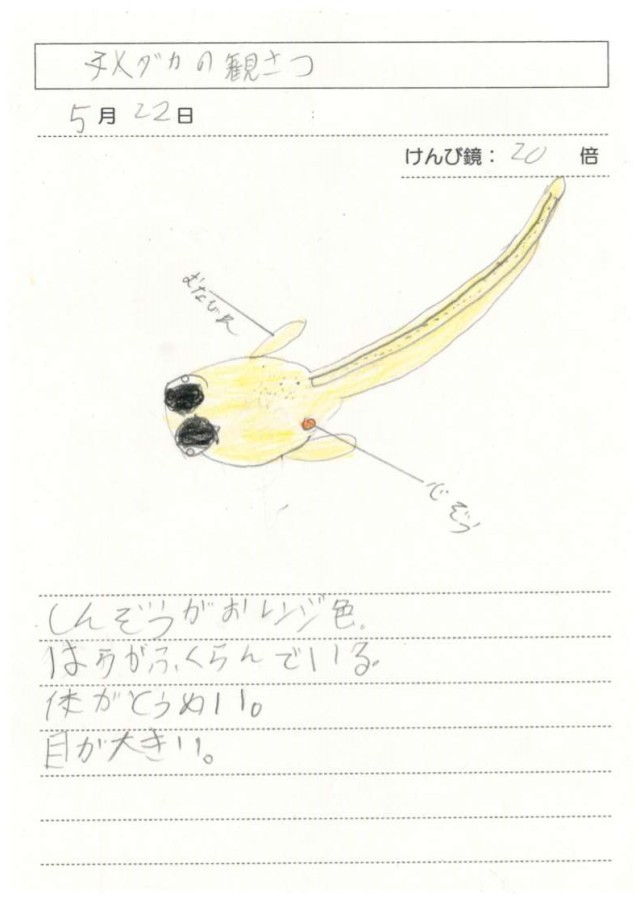 子メダカの観さつ
5月22日
けんび鏡：20 倍
むなびれ
心ぞう
しんぞうがおレンジ色。
はらがふくらんでいる。
体がとうめい。
目が大きい。